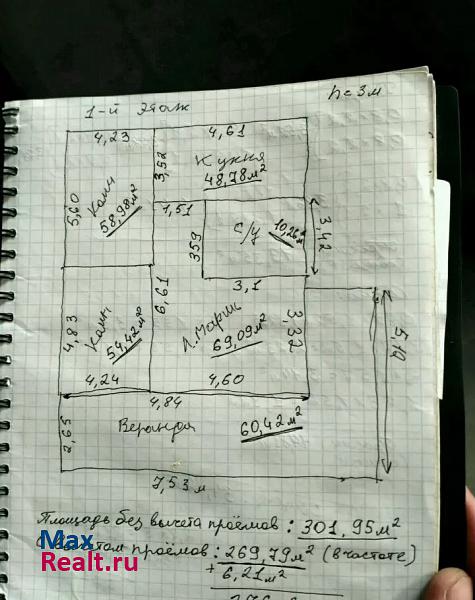 1-й этаж
h = 3м
4,23
4,61
Кухня
48,78м²
3,52
5,60
Комн
58,98м²
1,51
359
с/у
10,26м²
3,42
3,1
6,61
4,83
Комн
54,42м²
Л. Марш
69,09м²
3,32
5,12
4,24
4,60
4,84
2,65
Веранда
60,42м²
7,53 м
Площадь без вычета проёмов: 301,95м²
С вычетом проёмов: 269,79м² (в частоте)
+ 6,21м²
Max
Realt.ru